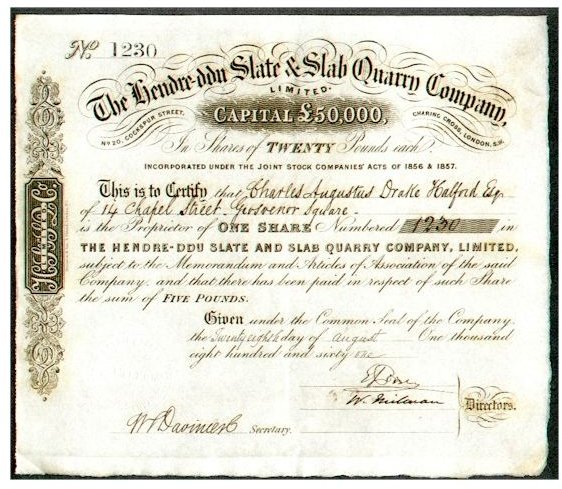 No. 1230
The Hendre-ddu Slate & Slab Quarry Company,
LIMITED.
No 20, COCKSPUR STREET,
CAPITAL £50,000,
CHARING CROSS, LONDON, S.W.
In Shares of TWENTY Pounds each.
INCORPORATED UNDER THE JOINT STOCK COMPANIES' ACTS OF 1856 & 1857.
This is to Certify that Charles Augustus Drake Halford Esq
of 14 Chapel Street Grosvenor Square
is the Proprietor of ONE SHARE Numbered 1230 in
THE HENDRE-DDU SLATE AND SLAB QUARRY COMPANY, LIMITED,
subject to the Memorandum and Articles of Association of the said
Company, and that there has been paid in respect of such Share
the sum of FIVE POUNDS.
Given under the Common Seal of the Company,
the Twenty eighth day of August One thousand
eight hundred and sixty one
Directors.
Secretary.